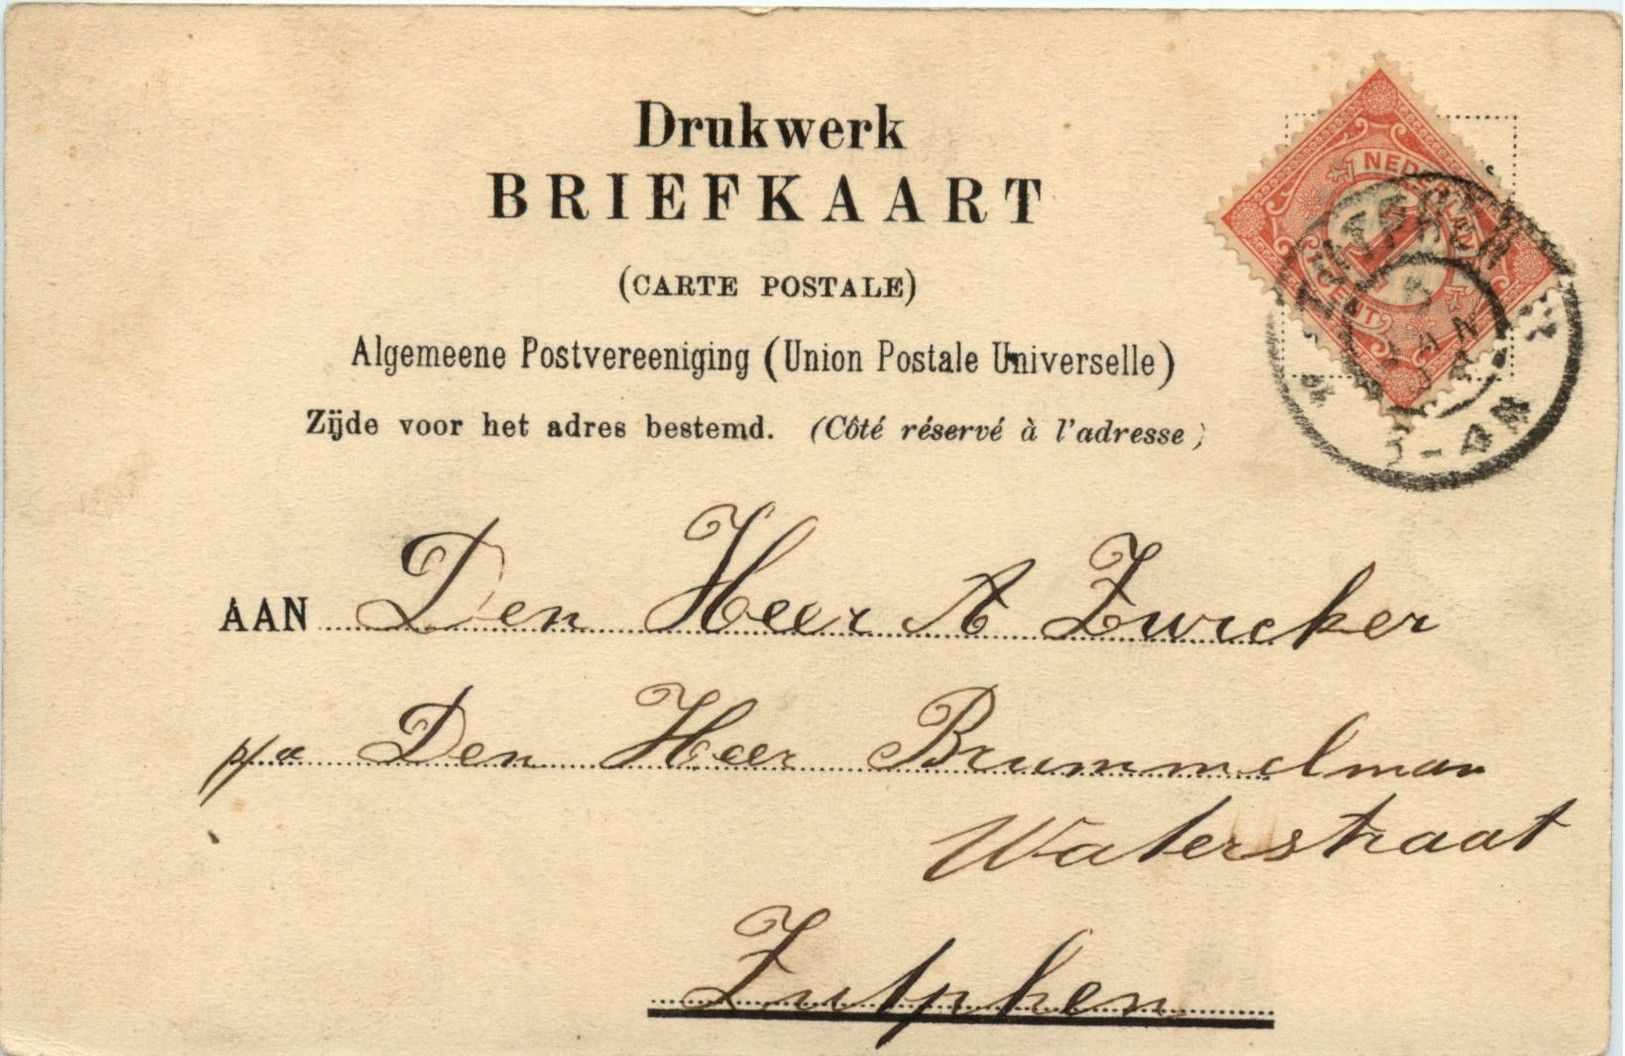 Drukwerk
BRIEFKAART
(CARTE POSTALE)
Algemeene Postvereeniging (Union Postale Universelle)
Zijde voor het adres bestemd. (Côté réservé à l'adresse)
NEDERLAND
1
CENT
AAN Den Heer A Zwicker
p/a Den Heer Brummelman
Waterstraat
Zutphen